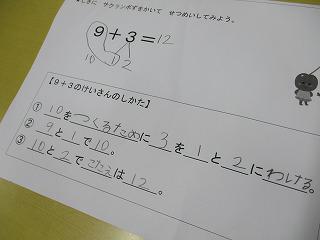 しきに サクランボずをかいて せつめいしてみよう。
9+3=12
10 1 2
【9+3のけいさんのしかた】
① 10をつくるために3を1と2にわける。
② 9と1で10。
③ 10と2でこたえは12。